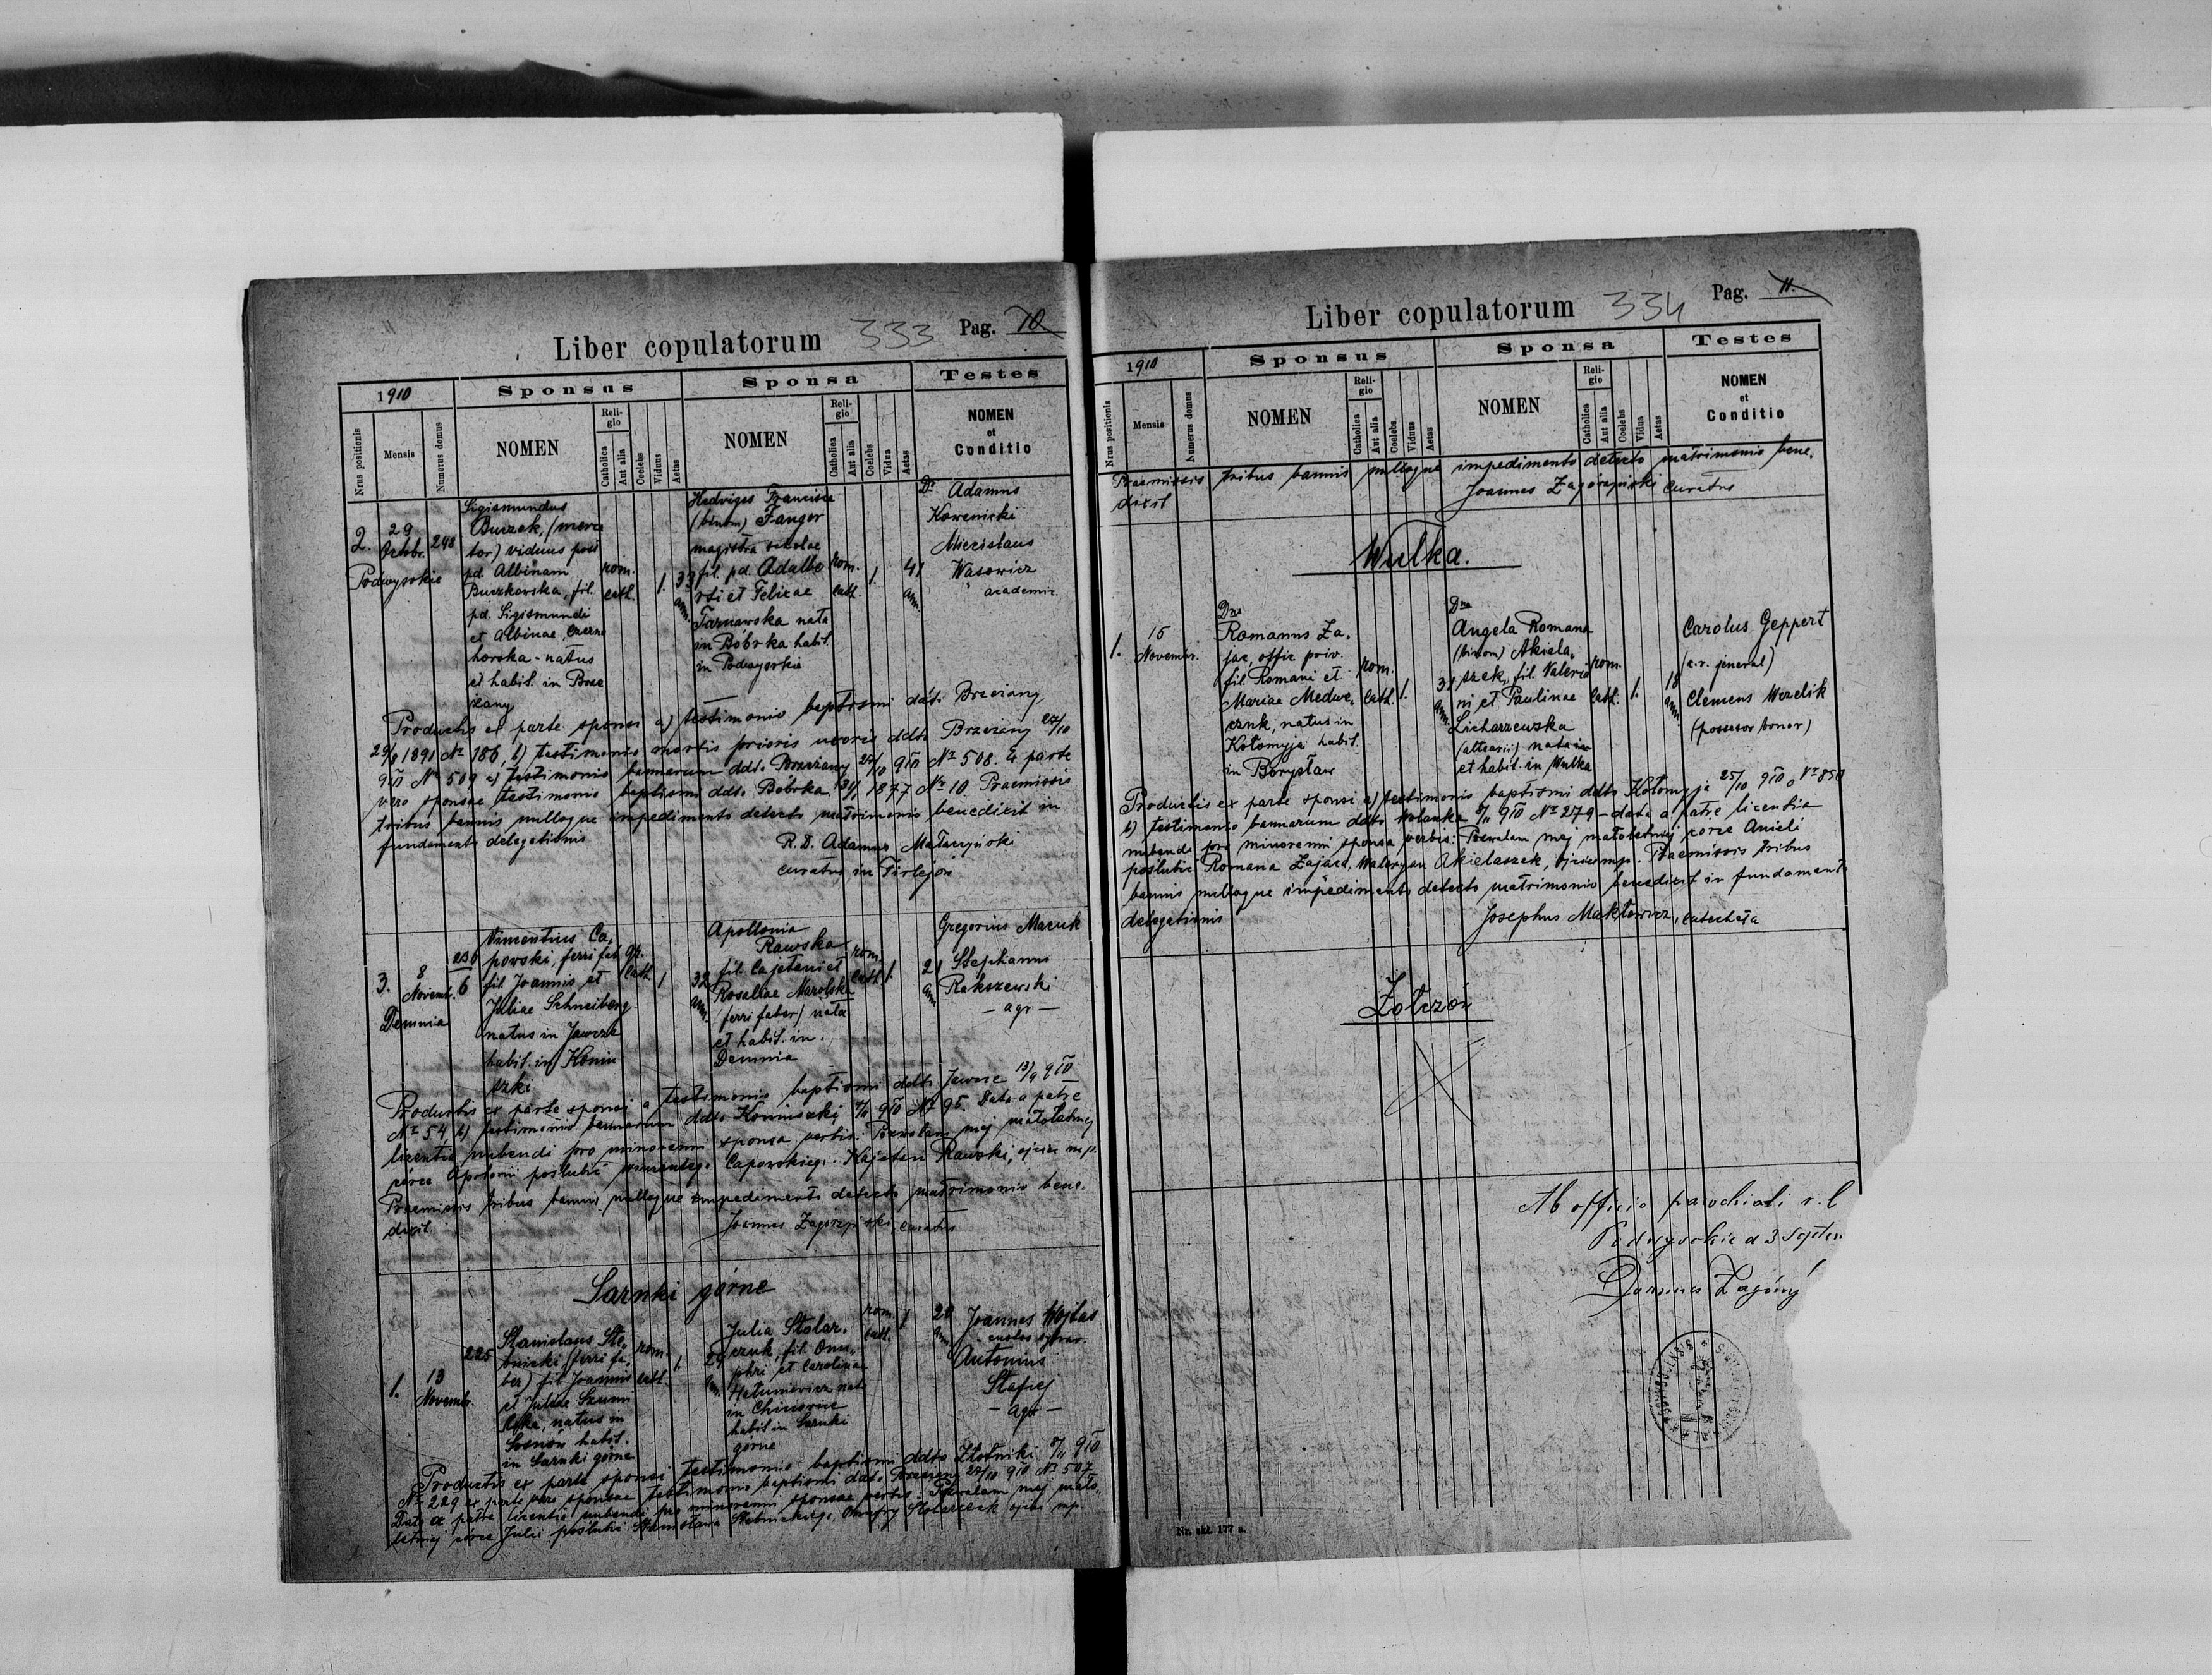 Liber copulatorum 333 Pag. 10
1910 Sponsus Sponsa Testes
Nrus positionis Mensis Numerus domus NOMEN Religio Catholica Aut alia Coelebs Viduus Aetas NOMEN Religio Catholica Aut alia Coelebs Vidua Aetas NOMEN et Conditio
2. 29 Octobr. 248
Podwysokie
Sigismundus
Buczek, (merca
tor) viduus post
pd. Albinam
Buczkowska, fil.
pd. Sigismundi
et Albinae, Czerno
horska - natus
et habit. in Brze
żany
rom. cath. 1. 33 ann.
Hedviges Francisca
(binom) Fanger
magistra scholae
fil. pd. Adalbe
rti et Felicae
Tarnawska nata
in Bóbrka habit.
in Podwysokie
rom. cath. 1. 41 ann.
Dr Adamus
Mieceslaus
Wąsowicz
academic.
Productis ex parte sponsi a) testimonio baptismi ddto Brzeżany
1891 Nr 186, b) testimonio mortis prioris uxoris ddto Brzeżany 27/10
910 Nr 509 c) testimonio bannorum ddto Brzeżany 27/10 910 Nr 508. Ex parte
vero sponsae testimonio baptismi ddto Bóbrka 1877 Nr 10 Praemissis
tribus bannis nulloque impedimento detecto matrimonio benedixit in
fundamento delegationis
R. D. Adamus
curatus in Firlejów
3. 8 Novemb. 230 6
Demnia
Vincentius Ca,
powski, ferri fab
fil Joannis et
Juliae Schneiberg
natus in Jawcze
habit. in Koniu
szki
gr. cath. 1 32 ann.
Apollonia
Rawska
fil. Cajetani et
Rosaliae Narolska
(ferri faber) nata
et habit. in
Demnia
rom. cath. 1. 21 ann
Gregorius Macuk
Stephanus
Rakszewski
- agr -
Productis ex parte sponsi a testimonio baptismi ddto Jawcze 13/9 910
Nr 54, b) testimonio bannorum ddto Koniuszki 910 Nr 95. Data a patre
licentia nubendi pro minorenni sponsa verbis: Pozwalam mej małoletniej
córce Apolonii poślubić Wincentego Capowskiego. Kajetan Rawski, ojciec mp.
Praemissis tribus bannis nulloque impedimento detecto matrimonio bene.
dixit
Joannes Zagórzyński curatus
Sarnki górne
1. 13 Novemb. 225
Stanislaus Ste,
bnicki (ferri fa,
ber) fil. Joannis
et Juliae Szumi
natus in
Sosnów habit.
in Sarnki górne
rom. cath. 1. 29 ann.
Julia Stolar,
czuk, fil. Onu,
phri et Carolinae
Hetuniewicz nata
in Chicowice
habit in Sarnki
górne
rom cath. 1 20 ann
Joannes Wojtas
Antonius
Stafiej
- agr -
Productis ex parte sponsi testimonio baptismi ddto Złotniki 910
Nr 229 ex parte vero sponsae testimonio baptismi ddto Brzeżany 27/10 910 Nr 507
Data a patre licentia nubendi pro minorenni sponsae verbis: Pozwalam mej mało,
letniej córce Julii poślubić Stanisława Stebnickiego. Onufry Stolarczuk ojciec mp.
Liber copulatorum 334 Pag. 11.
1910 Sponsus Sponsa Testes
Nrus positionis Mensis Numerus domus NOMEN Religio Catholica Aut alia Coelebs Viduus Aetas NOMEN Religio Catholica Aut alia Coelebs Vidua Aetas NOMEN et Conditio
Praemissis tribus bannis nulloque impedimento detecto matrimonio bene,
dixit
Joannes Zagórzyński curatus
Wulka.
1. 15 Novembr.
Dns
Romanus Za,
jac, offic priv.
fil. Romani et
Mariae Medwe,
czuk, natus in
Kołomyja habit.
in Borysław
rom. cath. 1. 31 ann.
Dna
Angela Romana
(binom) Akiela,
szek, fil. Valeria
ni et Paulinae
Licharzewska
nata in
et habit. in Wulka
rom. cath. 1. 18 ann.
Carolus Geppert
(c. r. general)
Clemens Wrzelik
(possesor bonor)
Productis ex parte sponsi a) testimonio baptismi ddto Kołomyja 25/10 910 Nr 850
b) testimonio bannorum ddto Wolanka 910 Nr 279 - data a patre licentia
nubendi pro minorenni sponsa verbis: Pozwalam mej małoletniej córce Anieli
poślubić Romana Zająca, Waleryan Akielaszek, ojciec mp. Praemissis tribus
bannis nulloque impedimento detecto matrimonio benedixit in fundamento
delegationis
Josephus Makłowicz, catecheta
Żołczów
Ab officio parochiali r. l
Podwysokie d 3 Septem
Joannes Zagórzy
Nr. skł. 177 a.